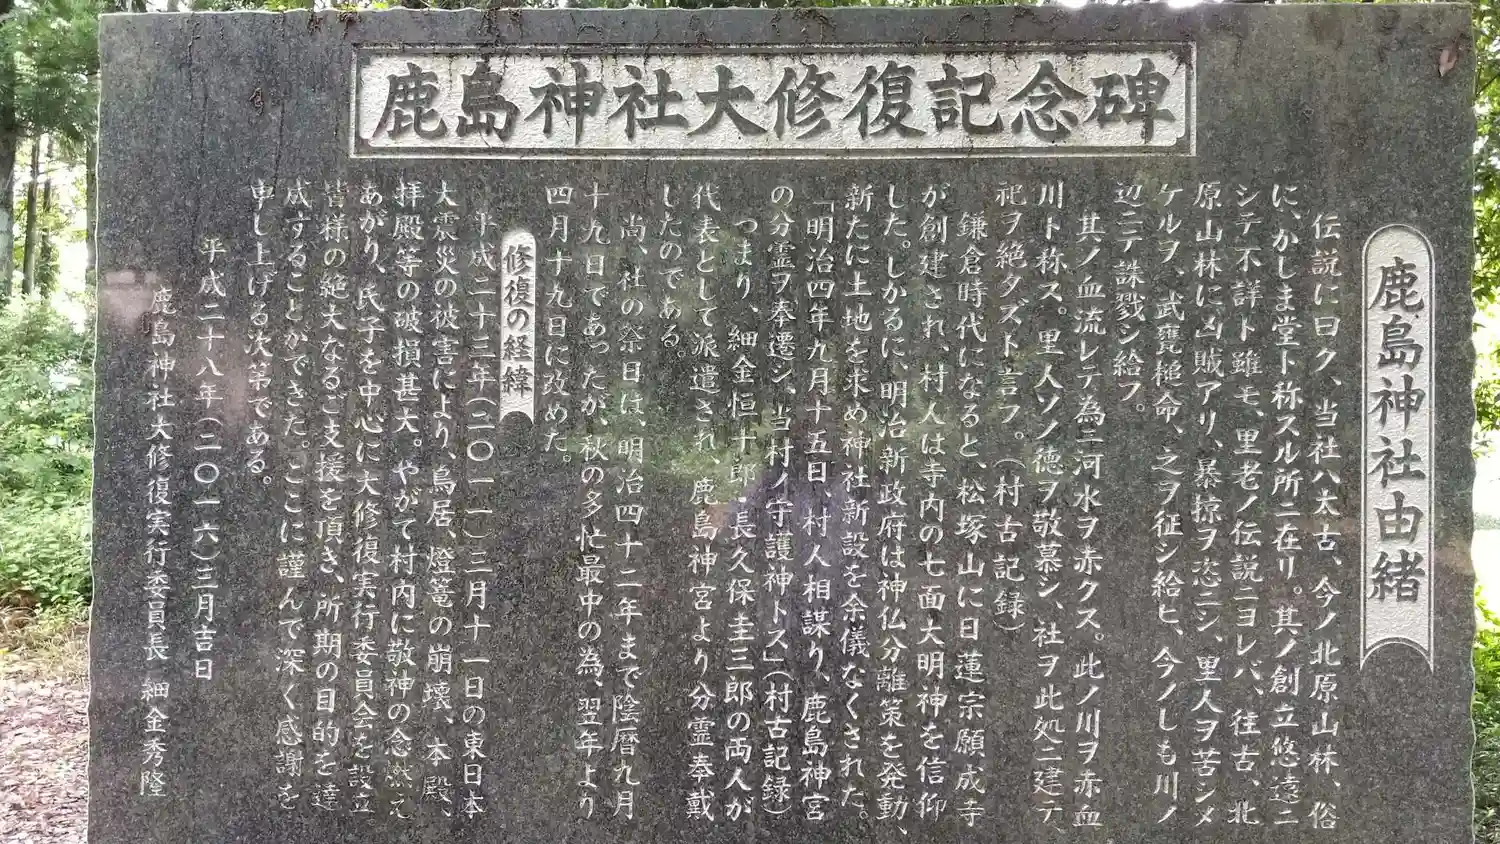 鹿島神社大修復記念碑
鹿島神社由緒
伝説に曰ク、当社ハ太古、今ノ北原山林、俗
に、かしま堂ト称スル所ニ在リ。其ノ創立悠遠ニ
シテ不詳ト雖モ、里老ノ伝説ニヨレバ、往古、北
原山林に凶賊アリ、暴掠ヲ恣ニシ、里人ヲ苦シメ
ケルヲ、武甕槌命、之ヲ征シ給ヒ、今ノしも川ノ
辺ニテ誅戮シ給フ。
其ノ血流レテ為ニ河水ヲ赤クス。此ノ川ヲ赤血
川ト称ス。里人ソノ徳ヲ敬慕シ、社ヲ此処ニ建テ、
祀ヲ絶タズト言フ。（村古記録）
鎌倉時代になると、松塚山に日蓮宗願成寺
が創建され、村人は寺内の七面大明神を信仰
した。しかるに、明治新政府は神仏分離策を発動、
新たに土地を求め神社新設を余儀なくされた。
「明治四年九月十五日、村人相謀り、鹿島神宮
の分霊ヲ奉遷シ、当村ノ守護神トス」（村古記録）
つまり、細金恒十郎・長久保圭三郎の両人が
代表として派遣され、鹿島神宮より分霊奉戴
したのである。
尚、社の祭日は、明治四十二年まで陰暦九月
十九日であったが、秋の多忙最中の為、翌年より
四月十九日に改めた。
修復の経緯
平成二十三年（二〇一一）三月十一日の東日本
大震災の被害により、鳥居、燈篭の崩壊、本殿、
拝殿等の破損甚大。やがて村内に敬神の念燃え
あがり、氏子を中心に大修復実行委員会を設立
皆様の絶大なるご支援を頂き、所期の目的を達
成することができた。ここに謹んで深く感謝を
申し上げる次第である。
平成二十八年（二〇一六）三月吉日
鹿島神社大修復実行委員長 細金秀隆